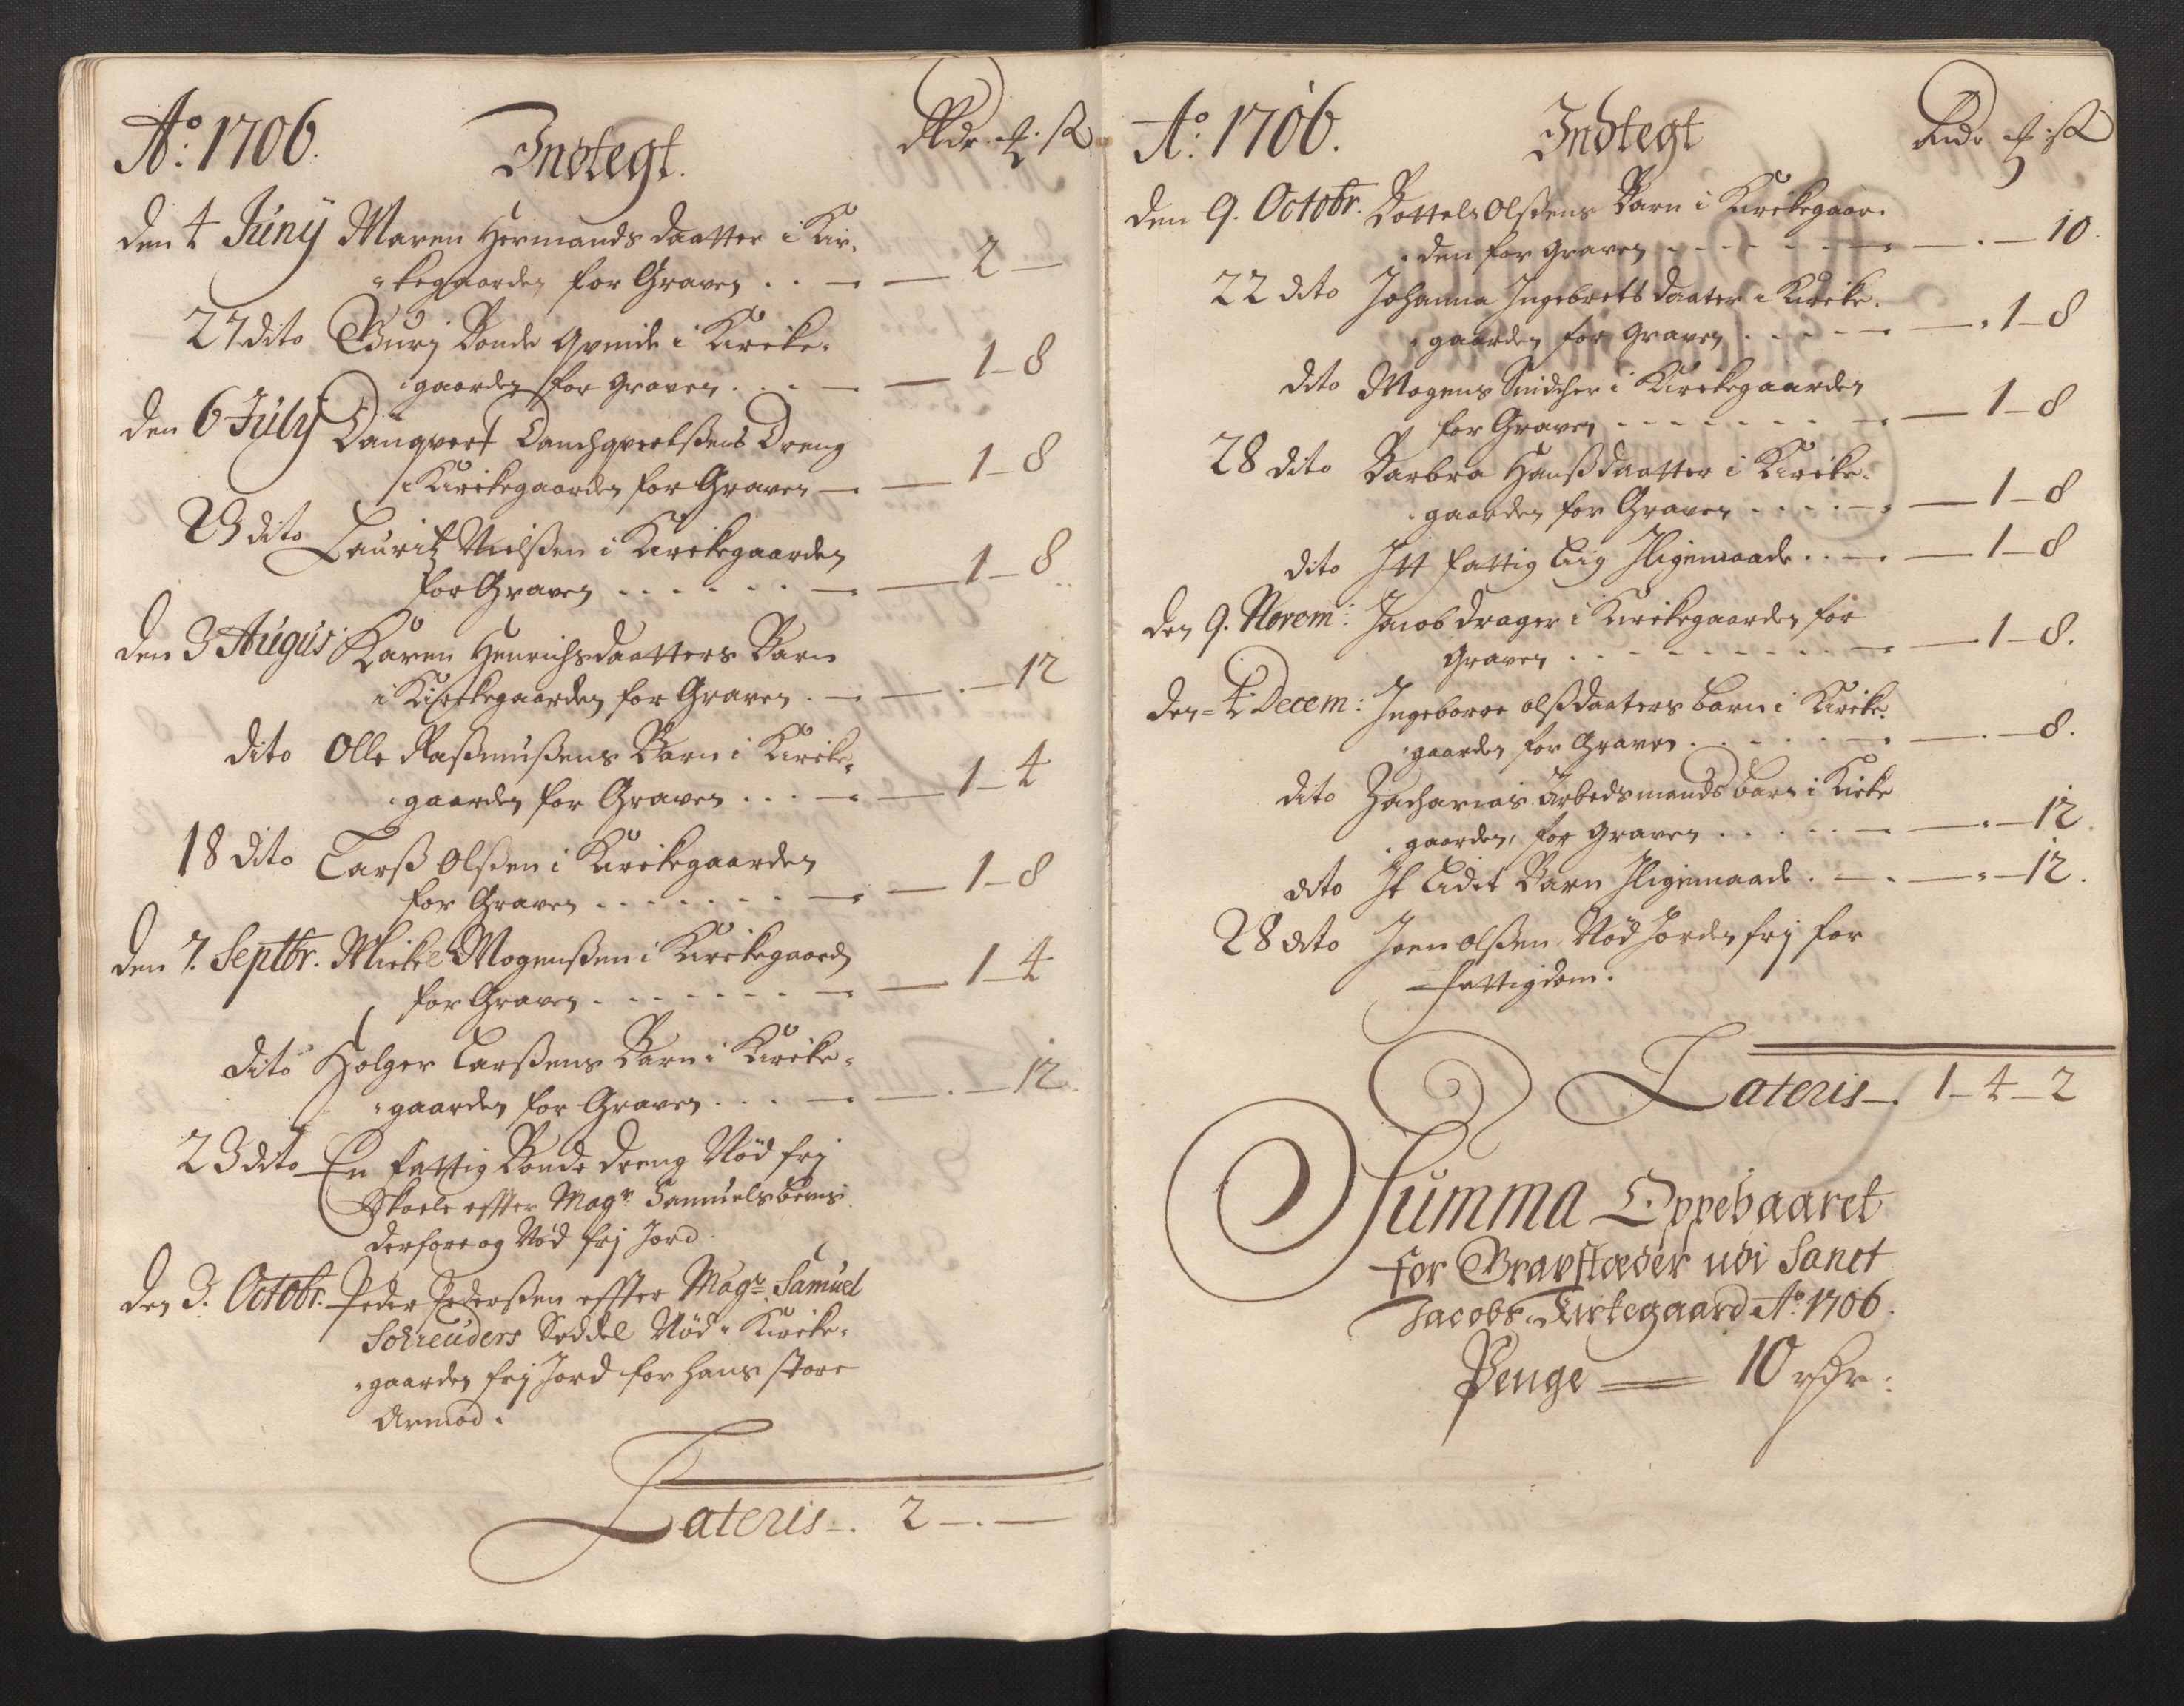 Ao: 1706. Indtegt. Rdr. ꝑ. ß
den 4 Juny Maren Hermandsdaatter i Kir-
kegaarden for Graven . . — — 2 —
27 dito Gurj Bonde Qvinde i Kircke-
gaarden for Graven . . . — — 1 – 8
den 6 July Danqvert Danchqvertsens Dreng
i Kirckegaarden for Graven — — 1 – 8
29 dito Lauritz Nielßen i Kirckegaarden
for Graven . . . . . . — — 1 – 8
den 3 Augus: Karen Henrichsdaatters Barn
i Kirckegaarden for Graven . — — . — 12
dito Olle Rasmußens Barn i Kircke-
gaarden for Graven . . . — — 1 – 4
18 dito Larß Olßen i Kirckegaarden
for Graven . . . . . . . — — 1 – 8
den 7. Septbr. Mickel Mogenßen i Kirckegaard
for Graven . . . . . . . — — 1 – 4
dito Holger Larßens Barn i Kircke-
gaarden for Graven . . . — — . — 12.
23 dito En fattig Bonde dreng Nød frj
Skoele effter Magr. Samuels beviis
derfore og Nød frj Jord.
den 3. Octobr. Peder Pederßen effter Magr. Samuel
Schreuders Seddel Nød i Kircke-
gaarden frj Jord for hans store
Armod.
Lateris —. 2 — . —
Ao: 1706. Indtegt Rdr ꝑ. ß
den 9. Octobr. Bottels Olßens Barn i Kirckegaar-
den for Graven . . . . . . . — — . — 10.
22 dito Johanna Ingebretsdaater i Kircke-
gaarden for Graven . . . . . — — . 1 – 8
dito Mogens Snidcher i Kirckegaarden
for Graven . . . . . . . — — 1 – 8
28 dito Barbra Hanßdaatter i Kircke-
gaarden for Graven . . . . . — — 1 – 8
dito Itt fattig Liig Iligemaade . . — — 1 – 8
den 9. Novem: Jacob drager i Kirckegaarden for
Graven . . . . . . . . . — — 1 – 8.
den 4 Decem: Ingeborre olßdaaters barn i Kircke-
gaarden for Graven . . . . . . — — . — 8.
dito Zacharias Arbedsmands barn i Kirke
gaarden, for Graven . . . . . — — . — 12.
dito It Lidet Barn Iligemaade . — . — . — 12.
28 dito Joen olßen Nød Jorden frj for
fattigdom.
Lateris —. 1 – 4 – 2
Summa Oppebaaret
for Gravstæder udi Sanct
Jacobs Kirkegaard Ao. 1706.
Penge — 10 rdr: